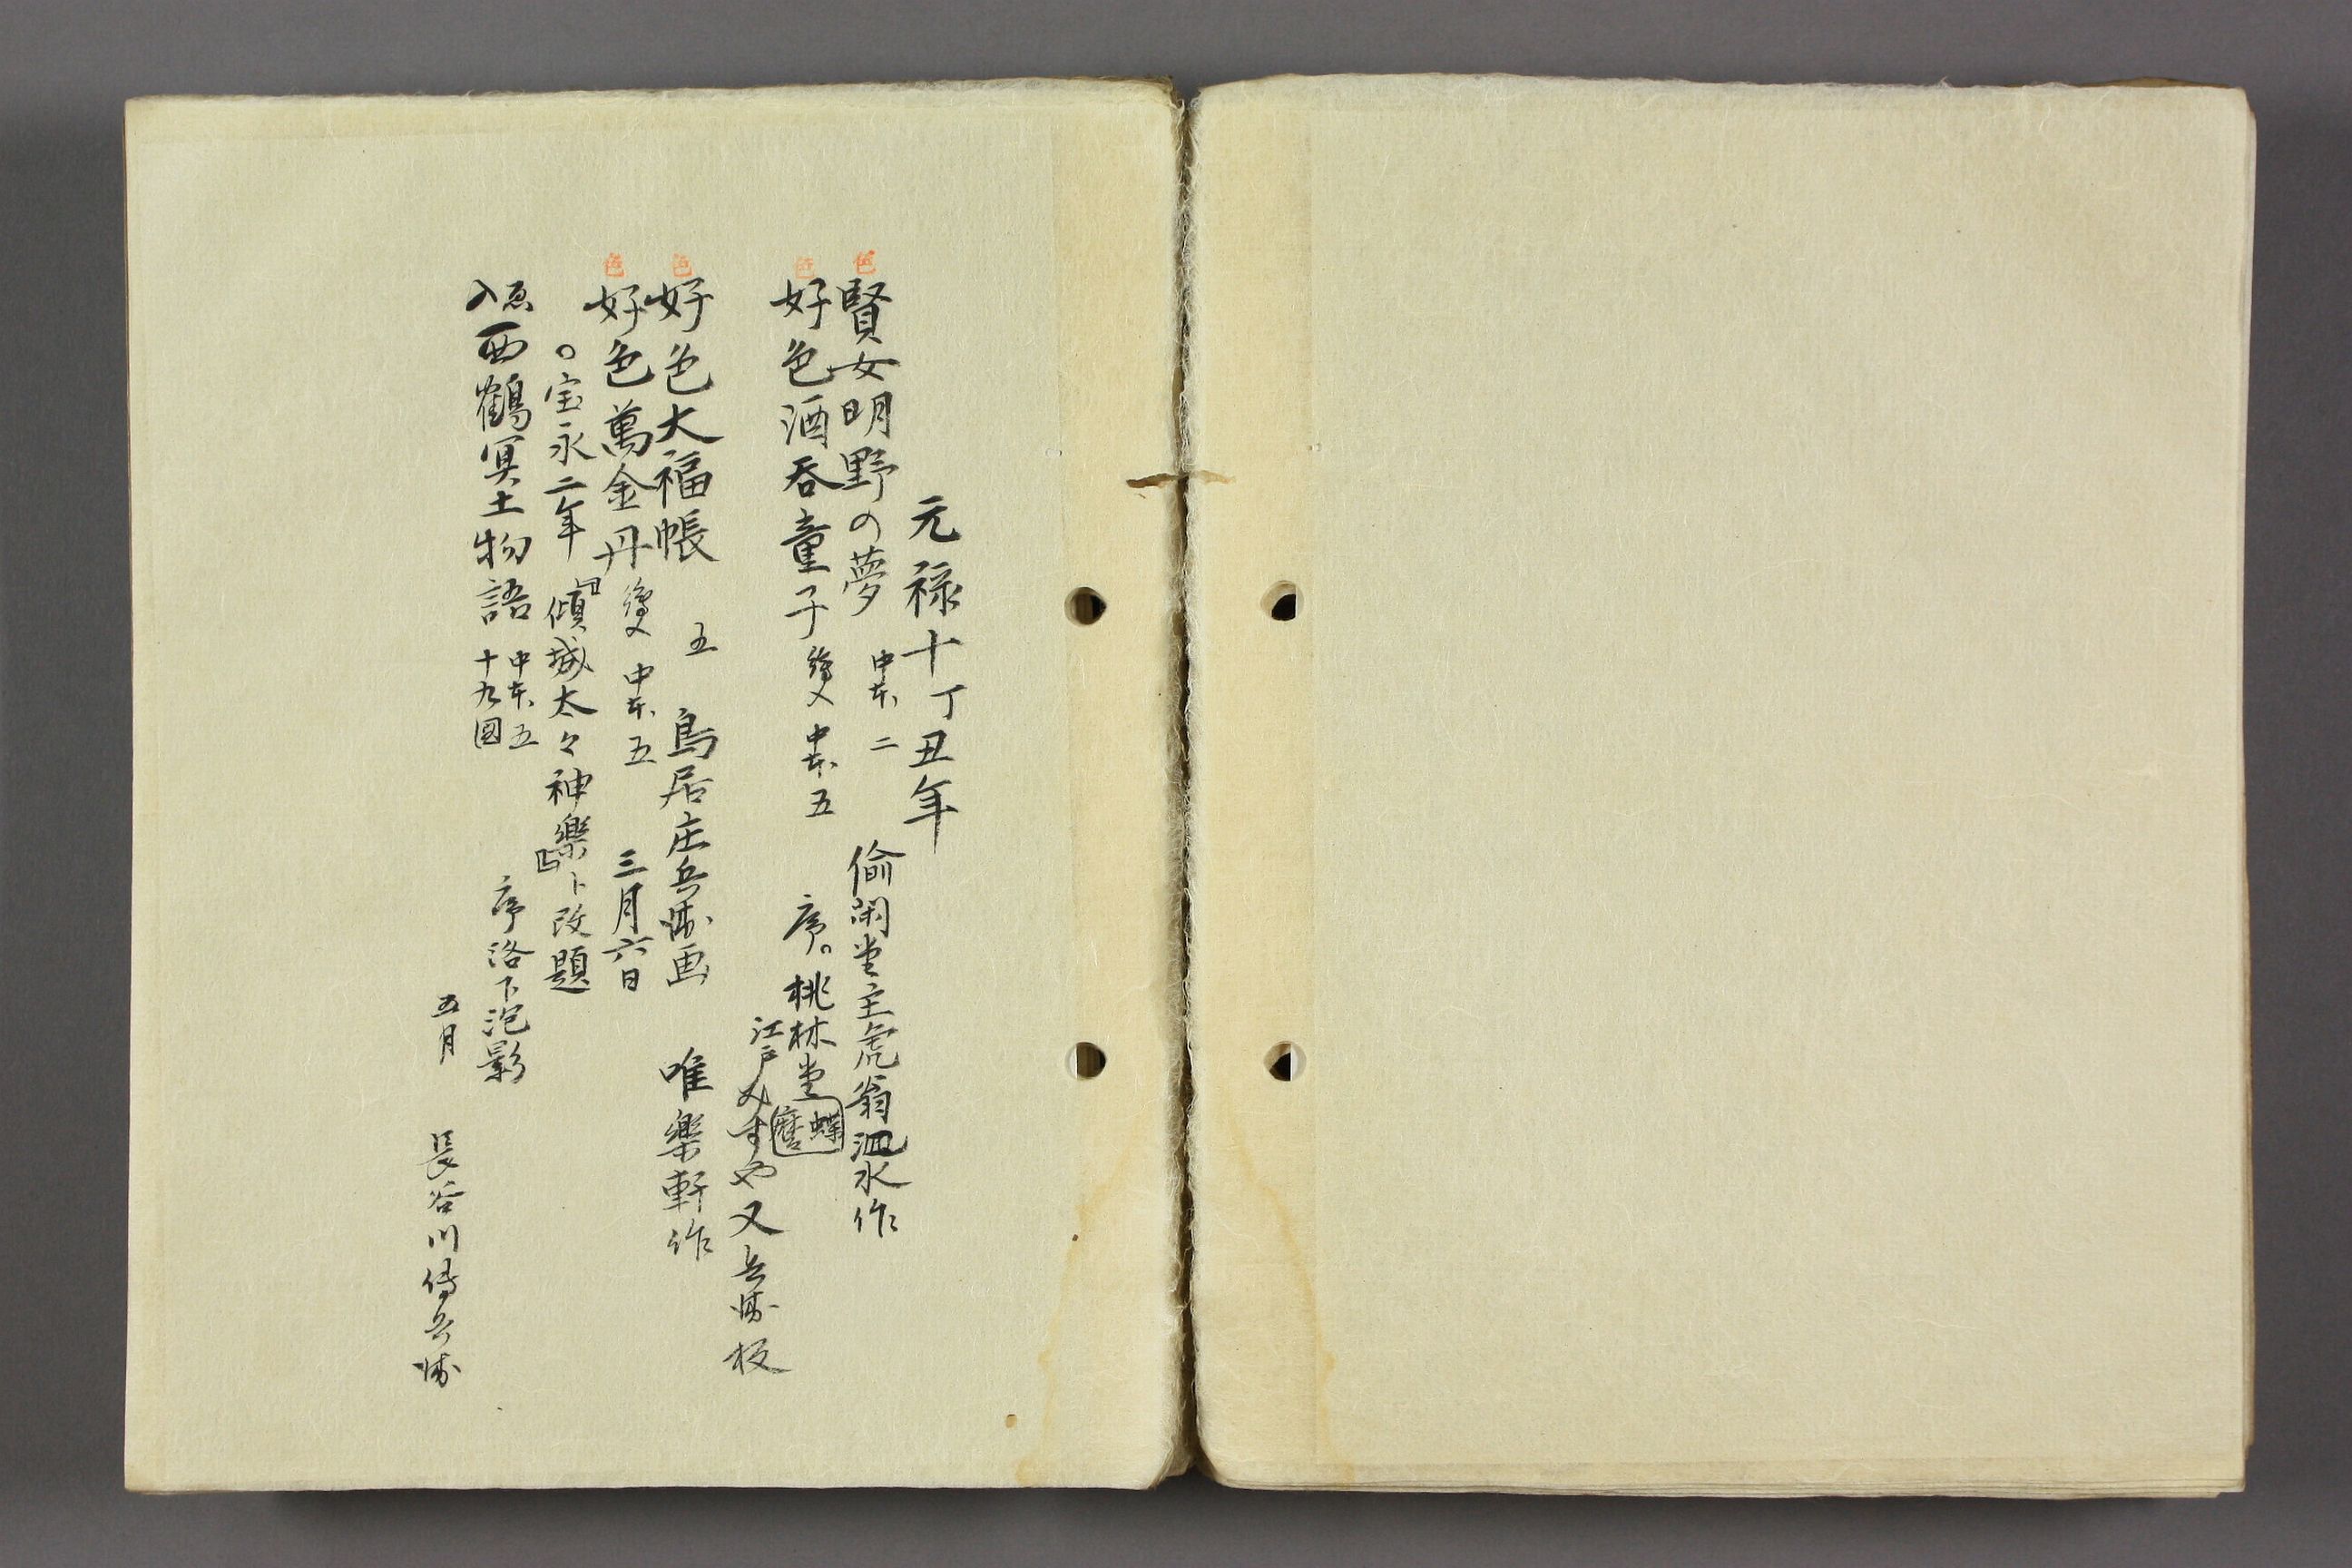 元禄十丁丑年
色 賢女明野の夢 中本 二 偷閑堂主虎翁泗水作
色 好色酒呑童子 繪入 中本 五 序。桃林堂 蝶麿
江戸みすや又兵衛板
色 好色大福帳 五 鳥居庄兵衛画 唯樂軒作
色 好色萬金丹 繪入 中本 五 三月六日
○宝永二年「傾城太々神樂」ト改題
ゑ入 西鶴冥土物語 中本 五 十九図 序 洛下泡影
五月 長谷川傳兵衛